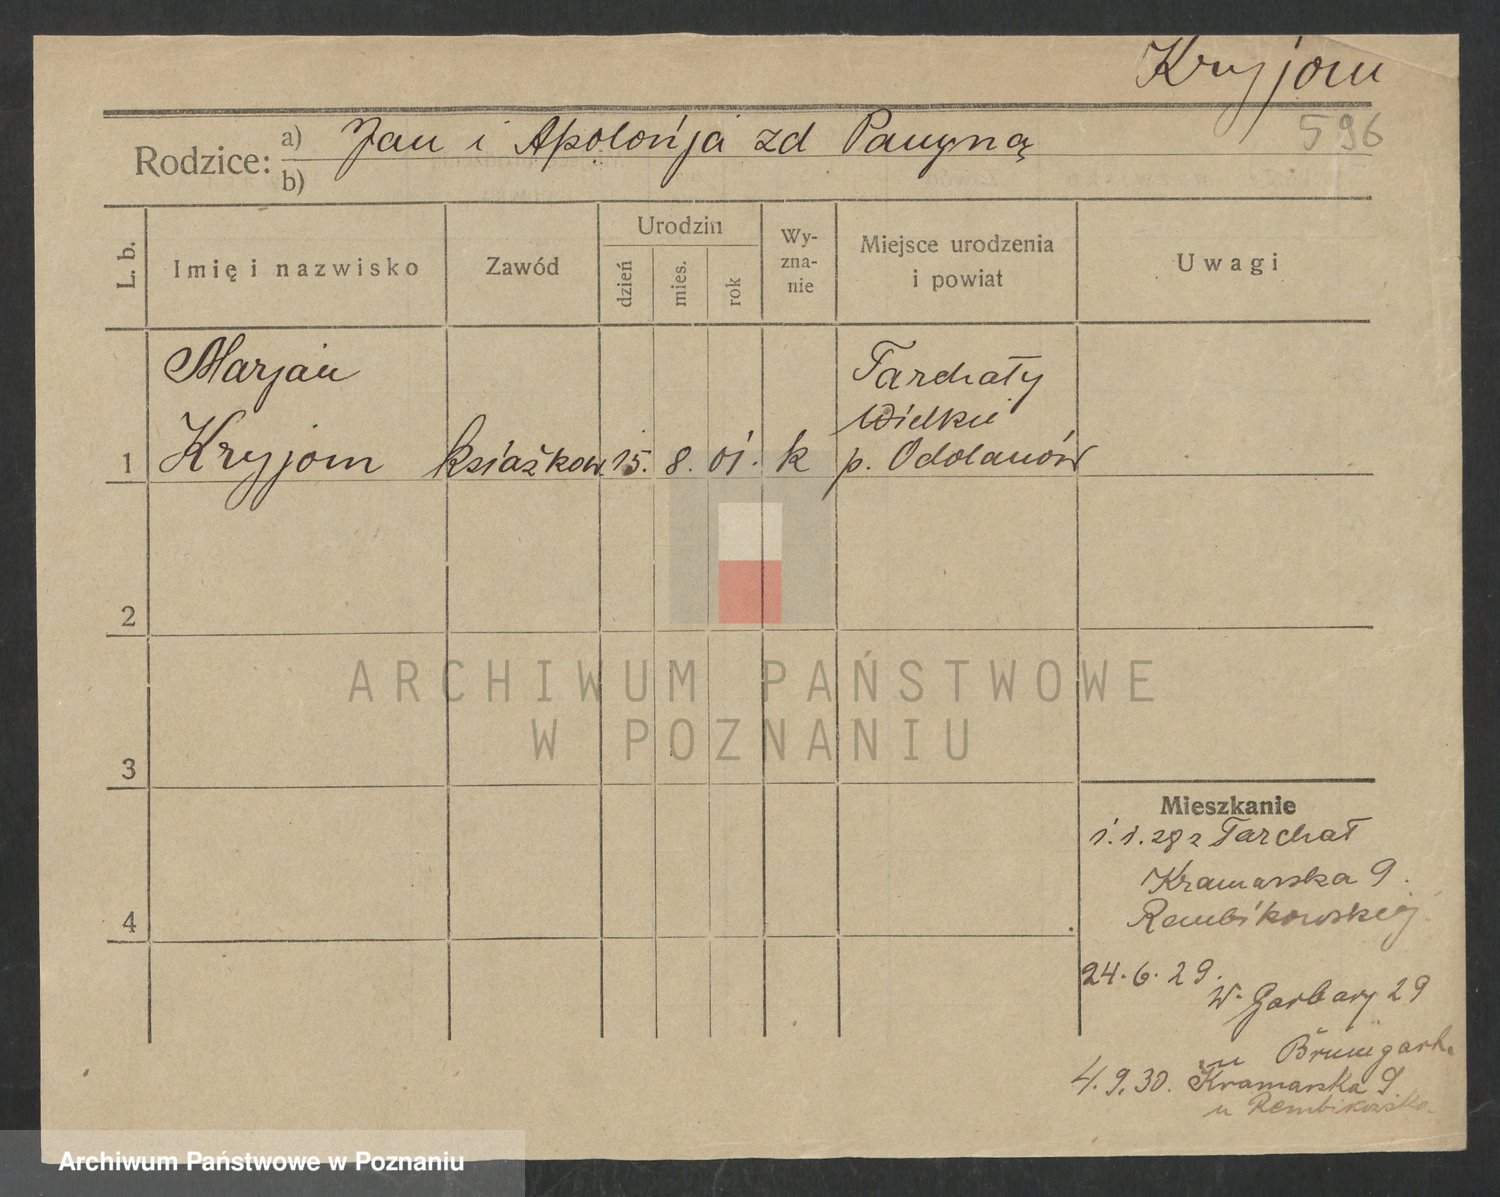 Kryjom
596
Rodzice: a) Jan i Apolońja zd
b)
L. b.
Imię i nazwisko
Zawód
Urodzin
dzień
mies.
rok
Wy-
zna-
nie
Miejsce urodzenia
i powiat
Uwagi
Marjan
Kryjom
1
książkow. 15. 8. 01. k
Tarchały
Wielkie
p. Odolanów
2
3
4
Mieszkanie
1.1.28 z Tarchał
Kramarska 9.
Rembikowskiej
24.6.29.
W. Garbary 29
u
4.9.30. Kramarska 9
u Rembikowska
ARCHIWUM PAŃSTWOWE
W POZNANIU
Archiwum Państwowe w Poznaniu